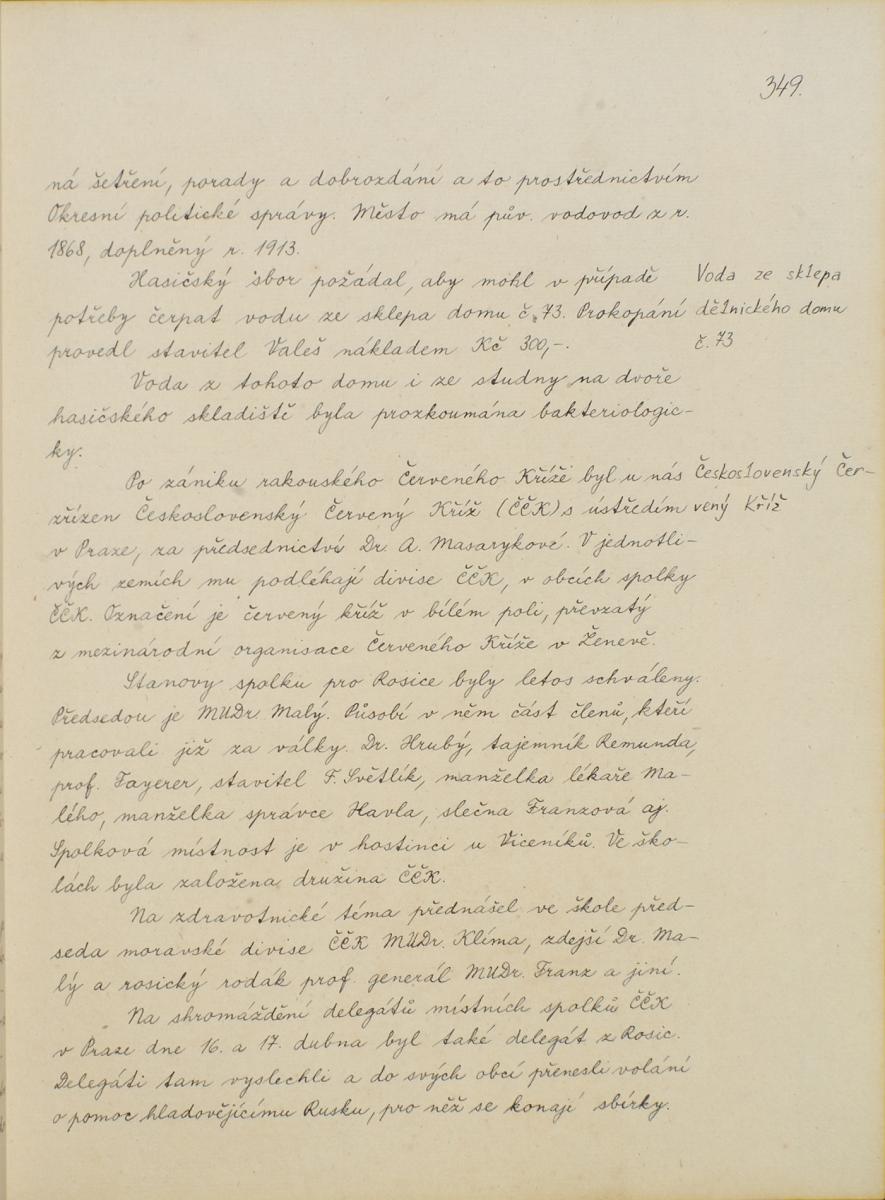 349.
ná šetření, porady a dobrozdání a to prostřednictvím
Okresní politické správy. Město má pův. vodovod z r.
1868, doplněný r. 1913.
Hasičský sbor požádal, aby mohl v případě
potřeby čerpat vodu ze sklepa domu č. 73. Prokopání
provedl stavitel Valeš nákladem Kč 300,-.
Voda ze sklepa
dělnického domu
č. 73
Voda z tohoto domu i ze studny na dvoře
hasičského skladiště byla prozkoumána bakteriologic-
ky.
Po zániku rakouského Červeného Kříže byl u nás
zřízen Československý Červený Kříž (ČČK) s ústředím
Československý Čer-
vený Kříž
v Praze, za předsednictví Dr. A. Masarykové. V jednotli-
vých zemích mu podléhají divise ČČK, v obcích spolky
ČČK. Označení je červený kříž v bílém poli, převzatý
z mezinárodní organisace Červeného Kříže v Ženevě.
Stanovy spolku pro Rosice byly letos schváleny.
Předsedou je MUDr. Malý. Působí v něm část členů, kteří
pracovali již za války. Dr. Hrubý, tajemník Remunda,
prof. Fayerer, stavitel F. Světlík, manželka lékaře Ma-
lého, manželka správce Havla, slečna Franzová aj.
Spolková místnost je v hostinci u Viceníků. Ve ško-
lách byla založena družina ČČK.
Na zdravotnické téma přednášel ve škole před-
seda moravské divise ČČK MUDr. Klíma, zdejší Dr. Ma-
lý a rosický rodák prof. generál MUDr. Franz a jiní.
Na shromáždění delegátů místních spolků ČČK
v Praze dne 16. a 17. dubna byl také delegát z Rosic.
Delegáti tam vyslechli a do svých obcí přenesli volání
o pomoc hladovějícímu Rusku, pro něž se konají sbírky.